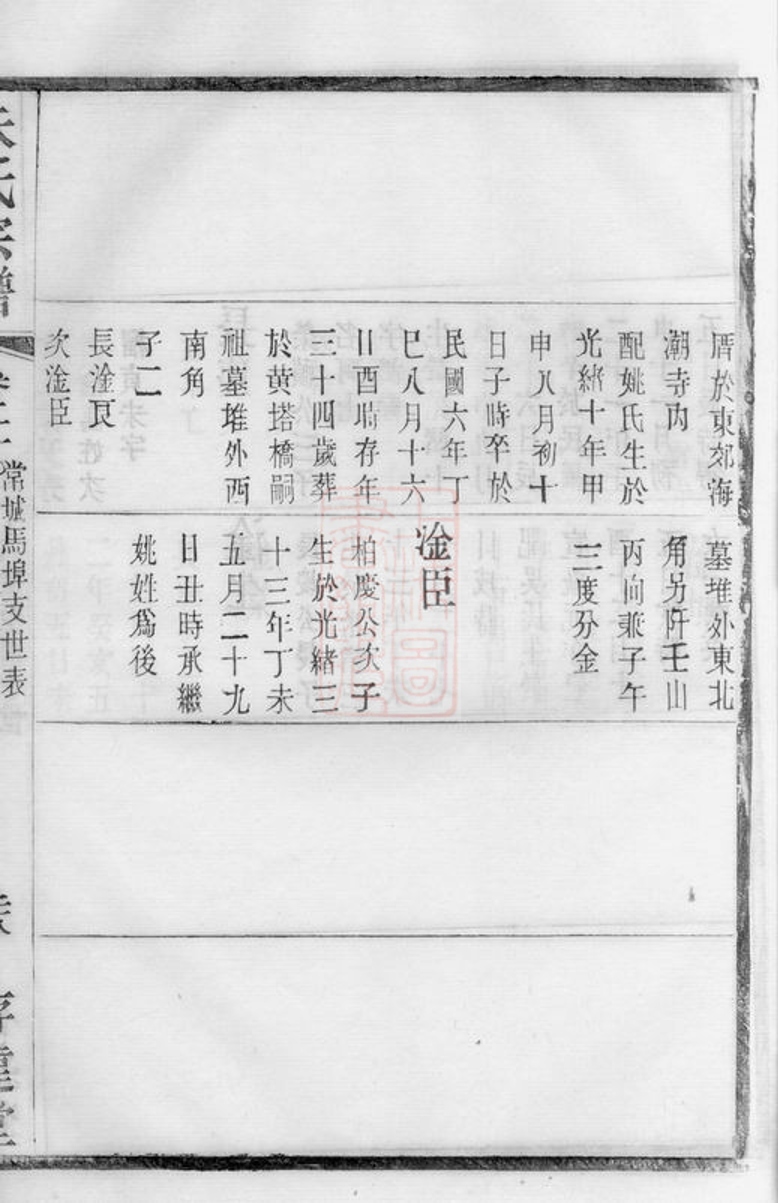 厝於東郊海
潮寺內
配姚氏生於
光緒十年甲
申八月初十
日子時卒於
民國六年丁
巳八月十六
日酉時存年
三十四歲葬
於黃塔橋嗣
祖墓堆外西
南角
子二
長淦良
次淦臣
墓堆外東北
角另阡壬山
丙向兼子午
三度分金
淦臣
柏慶公次子
生於光緒三
十三年丁未
五月二十九
日丑時承繼
姚姓爲後
氏宗譜
常城馬埠支世表